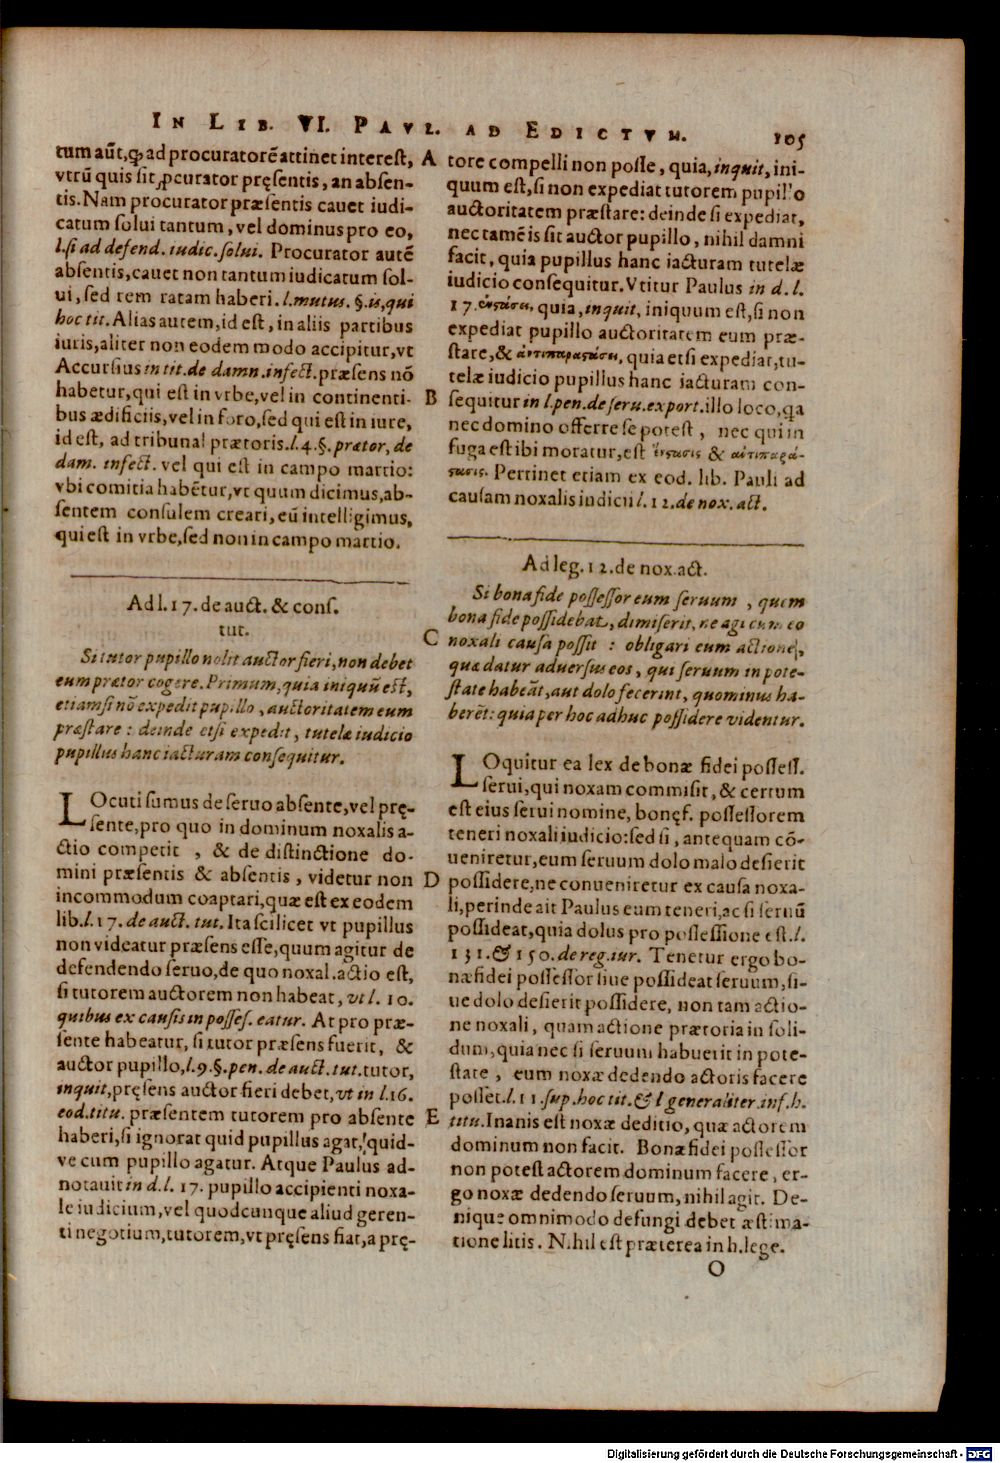 IN LIB. VI. PAVL. AD EDICTVM. 105
tum aūt, ꝙ ad procuratorē attinet interest,
vtrū quis sit ꝓcurator pręsentis, an absen-
tis. Nam procurator præsentis cauet iudi-
catum solui tantum, vel dominus pro eo,
l. si ad defend. iudic. solui. Procurator autē
absentis, cauet non tantum iudicatum sol-
ui, sed rem ratam haberi. l. mutus. §. is, qui
hoc tit. Alias autem, id est, in aliis partibus
iuris, aliter non eodem modo accipitur, vt
Accursius in tit. de damn. infect. præsens nō
habetur, qui est in vrbe, vel in continenti-
bus ædificiis, vel in foro, sed qui est in iure,
id est, ad tribunal prætoris. l. 4. §. prætor, de
dam. infect. vel qui est in campo martio:
vbi comitia habētur, vt quum dicimus, ab-
sentem consulem creari, eū intelligimus,
qui est in vrbe, sed non in campo martio.
Ad l. 17. de auct. & cons.
tut.
Si tutor pupillo nolit auctor fieri, non debet
eum prætor cogere. Primum, quia iniquū est,
etiamsi nō expedit pupillo, auctoritatem eum
præstare: deinde etsi expedit, tutelæ iudicio
pupillus hanc iacturam consequitur.
LOcuti sumus de seruo absente, vel prę-
sente, pro quo in dominum noxalis a-
ctio competit, & de distinctione do-
mini præsentis & absentis, videtur non
incommodum coaptari, quæ est ex eodem
lib. l. 17. de auct. tut. Ita scilicet vt pupillus
non videatur præsens esse, quum agitur de
defendendo seruo, de quo noxal. actio est,
si tutorem auctorem non habeat, vt l. 10.
quibus ex causis in posses. eatur. At pro præ-
sente habeatur, si tutor præsens fuerit, &
auctor pupillo, l. 9. §. pen. de auct. tut. tutor,
inquit, pręsens auctor fieri debet, vt in l. 16.
eod. titu. præsentem tutorem pro absente
haberi, si ignorat quid pupillus agat, quid-
ve cum pupillo agatur. Atque Paulus ad-
notauit in d. l. 17. pupillo accipienti noxa-
le iudicium, vel quodcunque aliud geren-
ti negotium, tutorem, vt pręsens fiat, a prę-
A
B
C
D
E
tore compelli non posse, quia, inquit, ini-
quum est, si non expediat tutorem pupillo
auctoritatem præstare: deinde si expediat,
nec tamē is sit auctor pupillo, nihil damni
facit, quia pupillus hanc iacturam tutelæ
iudicio consequitur. Vtitur Paulus in d. l.
17. ἐνστάσει, quia, inquit, iniquum est, si non
expediat pupillo auctoritatem eum præ-
stare, & ἀντιπαραστάσει, quia etsi expediat, tu-
telæ iudicio pupillus hanc iacturam con-
sequitur in l. pen. de seru. export. illo loco, qa
nec domino offerre se potest, nec qui in
fuga est ibi moratur, est ἔνστασις & ἀντιπαρά-
στασις. Pertinet etiam ex eod. lib. Pauli ad
causam noxalis iudicii l. 12. de nox. act.
Ad leg. 12. de nox. act.
Si bona fide possessor eum seruum, quem
bona fide possidebat, dimiserit, ne agi cum eo
noxali causa possit: obligari eum actione,
quæ datur aduersus eos, qui seruum in pote-
state habeāt, aut dolo fecerint, quominus ha-
berēt: quia per hoc adhuc possidere videntur.
LOquitur ea lex de bonæ fidei possess.
serui, qui noxam commisit, & certum
est eius serui nomine, bonę f. possessorem
teneri noxali iudicio: sed si, antequam cō-
ueniretur, eum seruum dolo malo desierit
possidere, ne conueniretur ex causa noxa-
li, perinde ait Paulus eum teneri, ac si seruū
possideat, quia dolus pro possessione est. l.
131. & 150. de reg. iur. Tenetur ergo bo-
næ fidei possessor siue possideat seruum, si-
ue dolo desierit possidere, non tam actio-
ne noxali, quam actione prætoria in soli-
dum, quia nec si seruum habuerit in pote-
state, eum noxæ dedendo actoris facere
posset. l. 11. sup. hoc tit. & l generaliter. inf. h.
titu. Inanis est noxæ deditio, quæ actorem
dominum non facit. Bonæ fidei possessor
non potest actorem dominum facere, er-
go noxæ dedendo seruum, nihil agit. De-
nique omnimodo defungi debet æstima-
tione litis. Nihil est præterea in h. lege.
O
Digitalisierung gefördert durch die Deutsche Forschungsgemeinschaft - DFG